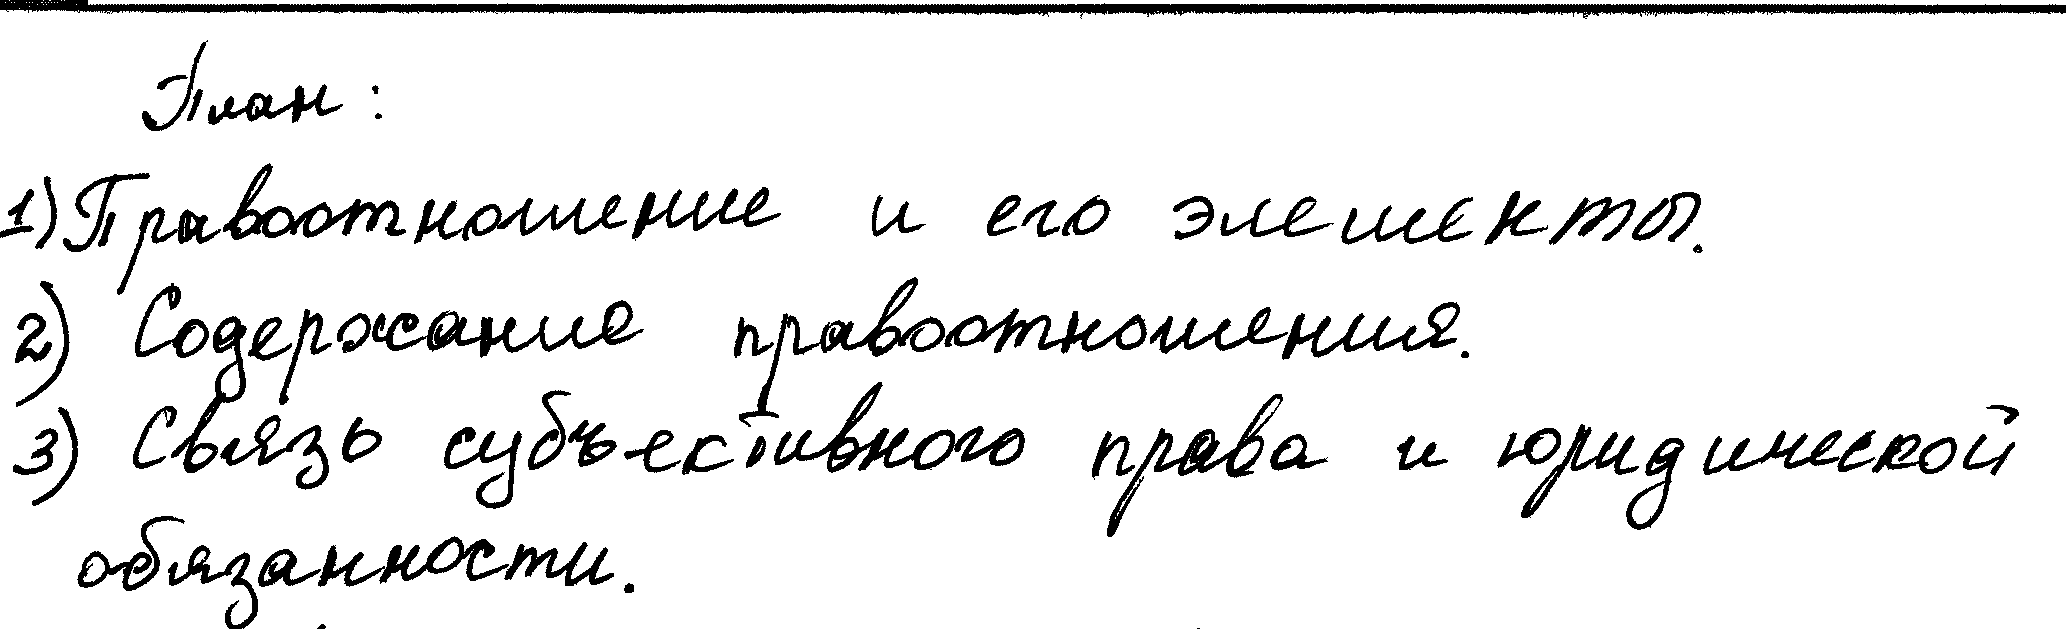 План:
1) Правоотношение и его элементы.
2) Содержание правоотношения.
3) Связь субъективного права и юридической
обязанности.